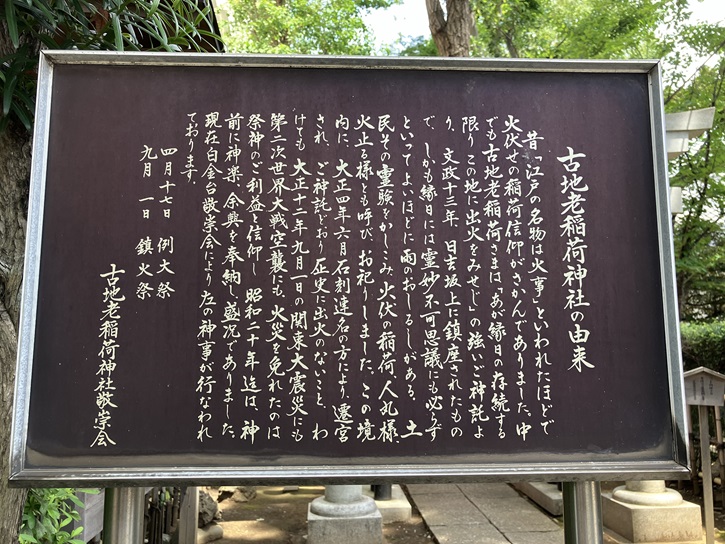 古地老稲荷神社の由来
昔「江戸の名物は火事」といわれたほどで
火伏せの稲荷信仰がさかんでありました。中
でも古地老稲荷さまは、あが縁日の存続する
限りこの地に出火をみせじ」の強いご神託よ
り、文政十三年、日吉坂上に鎮座されたもの
で、しかも縁日には霊妙不可思議にも必らず
といってよいほどに雨のおしるしがある。土
民その霊験をかしこみ、火伏の稲荷、人丸様、
火止る様とも呼び、お祀りしました。この境
内に、大正四年六月石刻連名の方により、遷宮
され、ご神託どおり正史に出火のないこと、わ
けても大正十二年九月一日の関東大震災にも
第二次世界大戦空襲にも、火災を免れたのは
祭神のご利益と信仰し昭和二十年迄は、神
前に神楽、余興を奉納し盛況でありました。
現在白金台敬崇会により左の神事が行なわれ
ております。
四月十七日 例大祭
九月 一日 鎮火祭
古地老稲荷神社敬崇会